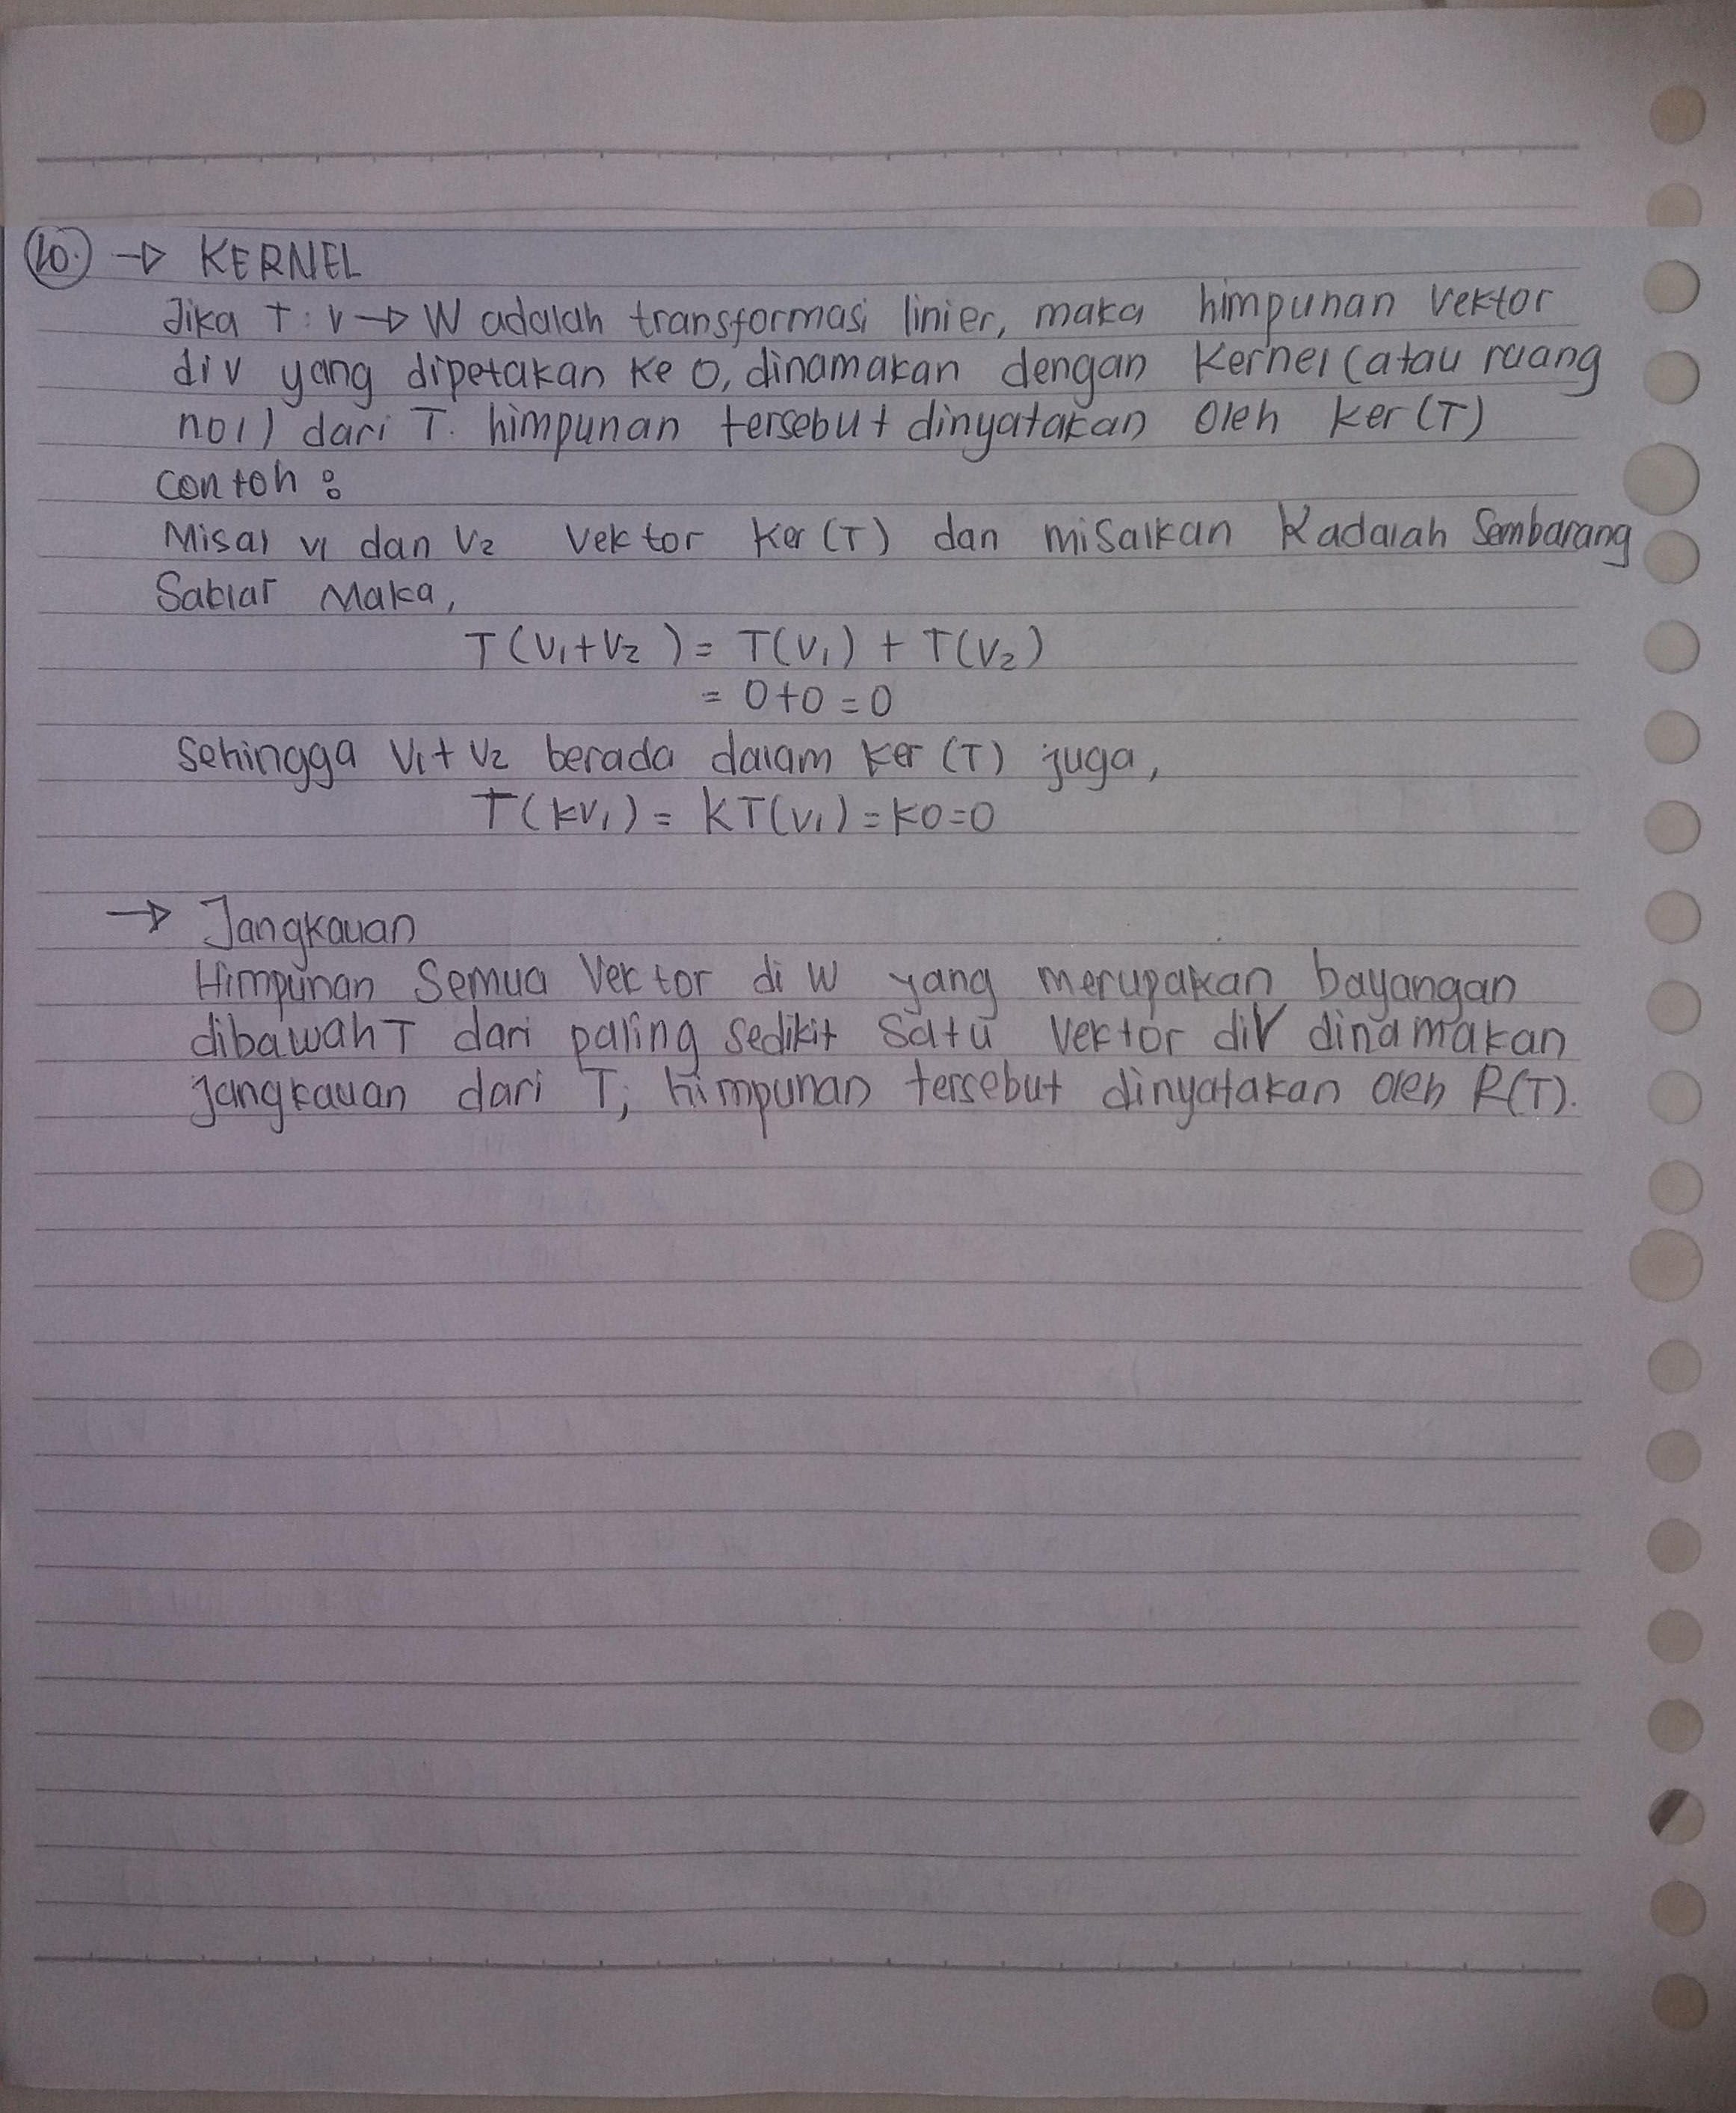 10. → KERNEL
Jika T : V → W adalah transformasi linier, maka himpunan vektor
di V yang dipetakan ke 0, dinamakan dengan Kernel (atau ruang
nol) dari T. himpunan tersebut dinyatakan oleh ker (T)
Contoh :
Misal v1 dan V2 vektor Ker (T) dan misalkan K adalah Sembarang
Sablar Maka,
T(V1+V2) = T(V1) + T(V2)
= 0+0 = 0
Sehingga V1+V2 berada dalam Ker (T) juga,
T(kV1) = KT(V1) = K0=0
→ Jangkauan
Himpunan Semua Vektor di W yang merupakan bayangan
dibawah T dari paling sedikit satu vektor di V dinamakan
jangkauan dari T; himpunan tersebut dinyatakan oleh R(T).